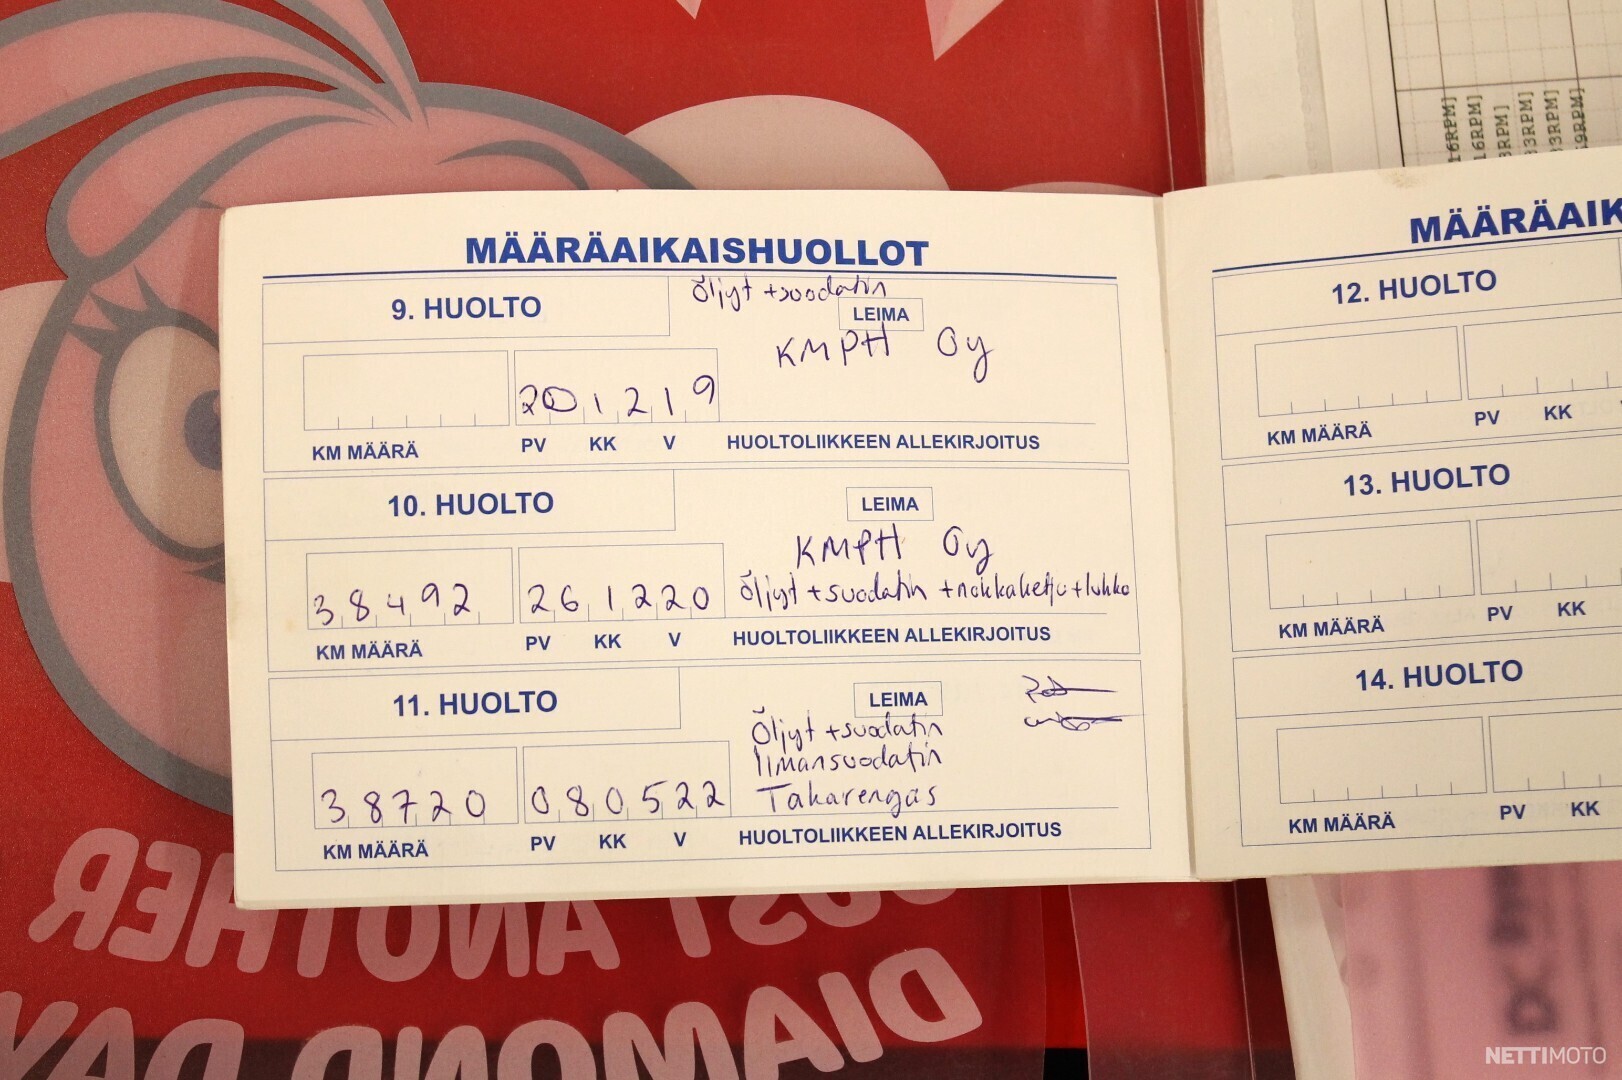 MÄÄRÄAIKAISHUOLLOT
9. HUOLTO
öljyt + suodatin
LEIMA
KMPH Oy
201219
KM MÄÄRÄ PV KK V HUOLTOLIIKKEEN ALLEKIRJOITUS
10. HUOLTO
LEIMA
KMPH Oy
38492 261220 öljyt + suodatin + nokkaketju + lukko
KM MÄÄRÄ PV KK V HUOLTOLIIKKEEN ALLEKIRJOITUS
11. HUOLTO
LEIMA
Öljyt + suodatin
Ilmansuodatin
38720 080522 Takarengas
KM MÄÄRÄ PV KK V HUOLTOLIIKKEEN ALLEKIRJOITUS
MÄÄRÄAIK
12. HUOLTO
KM MÄÄRÄ PV KK
13. HUOLTO
KM MÄÄRÄ PV KK
14. HUOLTO
KM MÄÄRÄ PV KK
16RPM]
16RPM]
3RPM]
33RPM]
33RPM]
9RPM]
JUST ANOTHER
DIAMOND DAY
NETTIMOTO